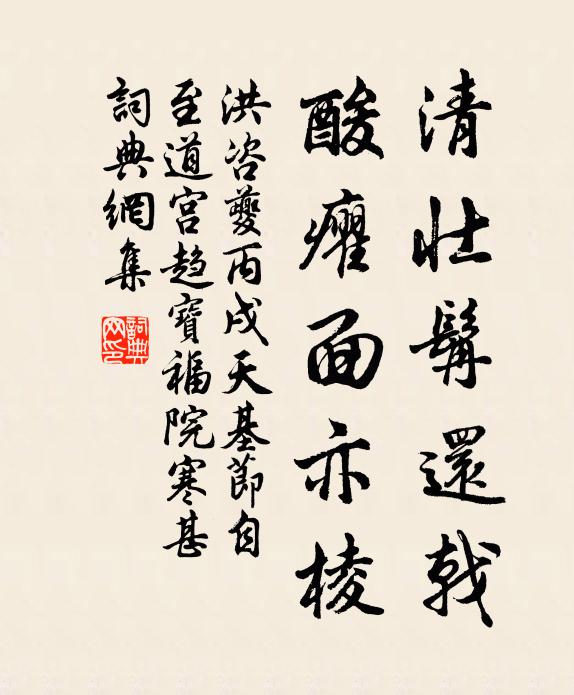 清壯髯還戟
酸癯面亦棱
洪咨夔丙戌天基節自
至道宮趋寶福院寒甚
詞典網集
詞典网印